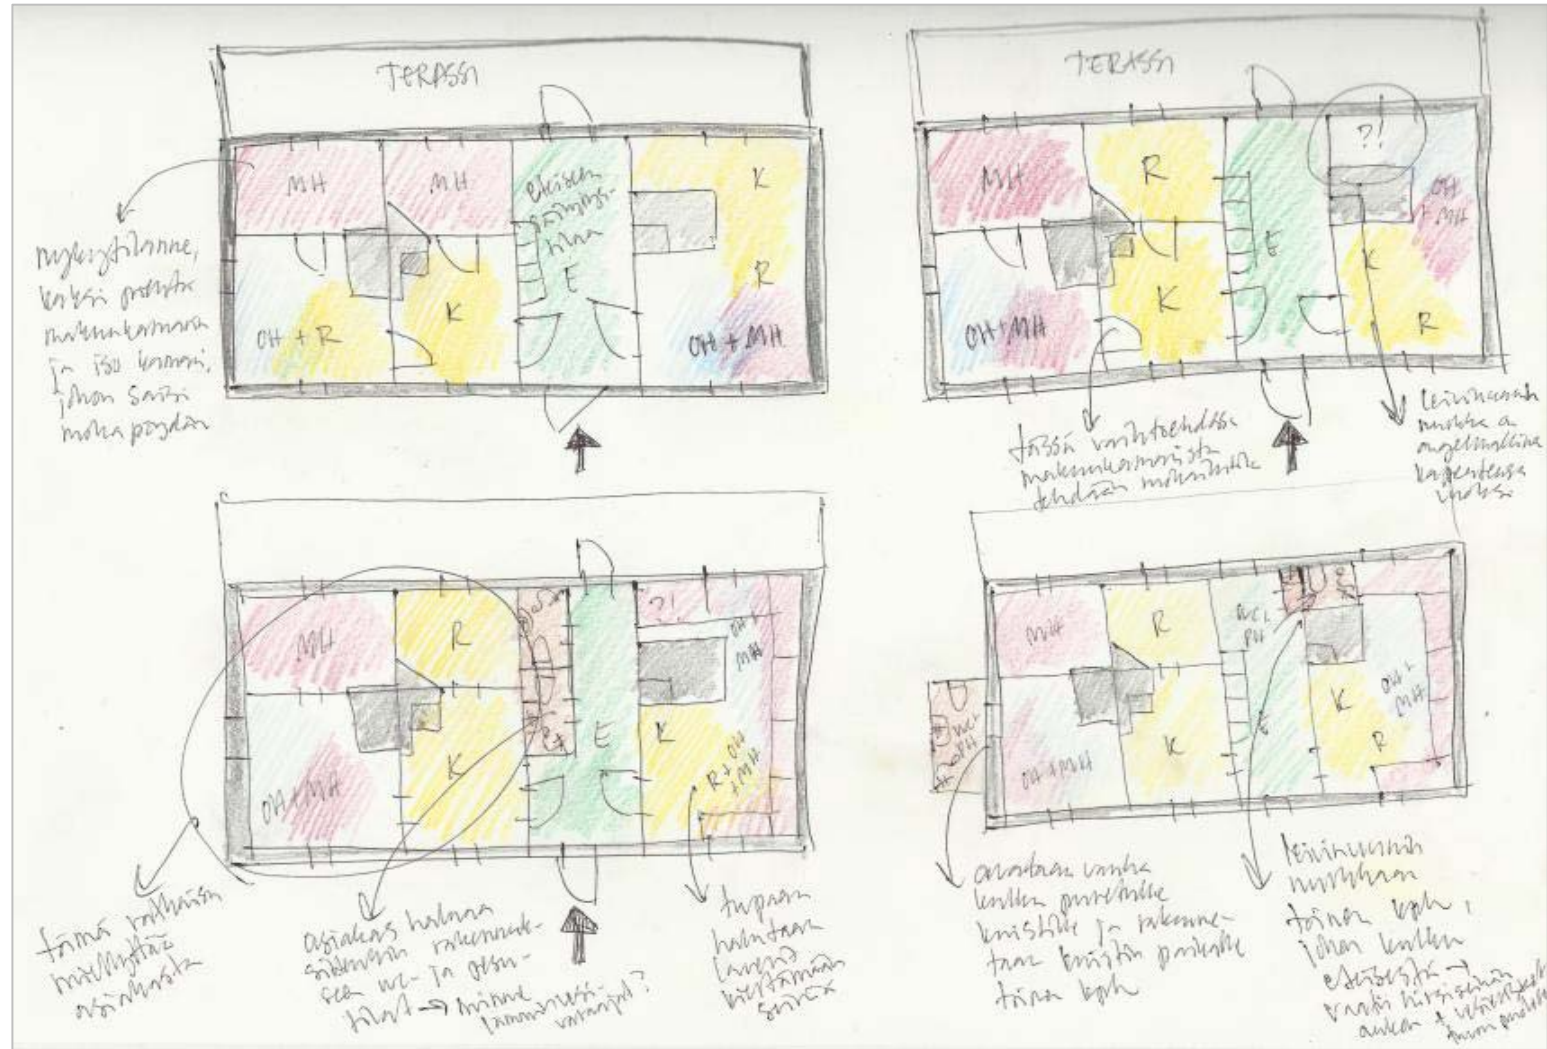 TERASSI
MH
MH
eteisen
säilytys-
tilaa
E
K
R
OH + R
K
OH + MH
nykytilanne,
kaksi pientä
makuukamaria
ja iso kamari,
johon saisi
ruokapöydän
TERASSI
MH
R
E
?!
OH
+ MH
K
R
OH+MH
K
tässä vaihtoehdossa
makuukamarista
tehdään ruokailutila
leivinuunin
nurkka on
ongelmallinen
kapeutensa
vuoksi
MH
R
?!
OH +
MH
E
K
R+OH
+MH
OH+MH
K
tämä ratkaisu
miellyttää
asiakasta
asiakas haluaa
sittenkin rakennuk-
seen wc- ja pesu-
tilat → minne
lämminvesi-
varaajat?
tupaan
halutaan
laverit
kiertämään
seiniä
MH
R
WC+
PH
E
K
R
OH+
MH
WC+
PH
OH+MH
K
avataan vanha
kulku puretulle
kuistille ja rakenne-
taan kuistin paikalle
toinen kph
leivinuunin
nurkkaan
toinen kph,
johon kulku
eteisestä →
vaatii hirsiseinän